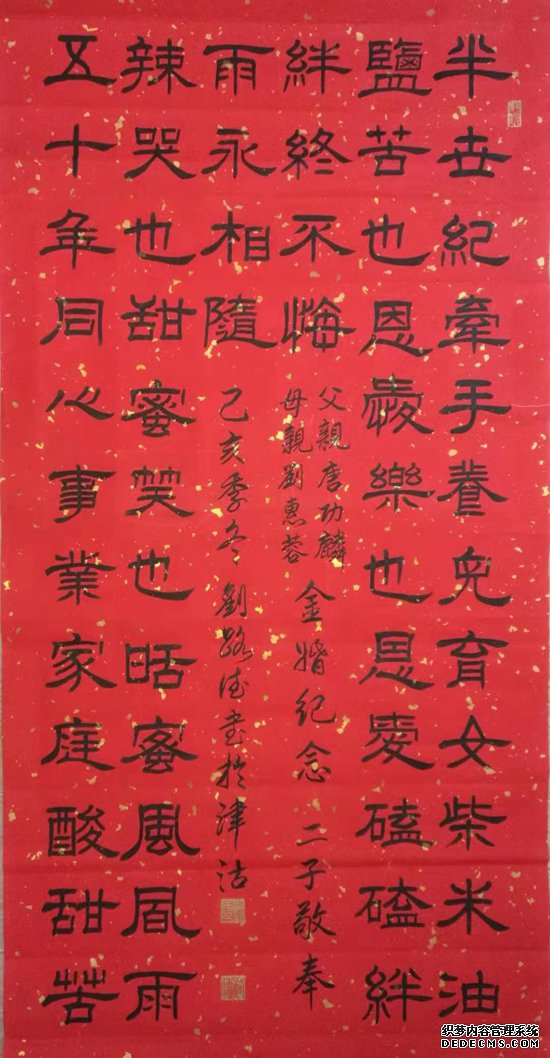 半世紀牽手養兒育女柴米油
鹽苦也恩愛樂也恩愛磕磕絆
絆終不悔
父親唐功麟
母親劉惠蓉
金婚纪念 二子敬奉
五十年同心事業家庭酸甜苦
辣哭也甜蜜笑也甛蜜風風雨
雨永相隨
己亥季冬劉路德書於津沽
织梦内容管理系统
DEDECMS.COM